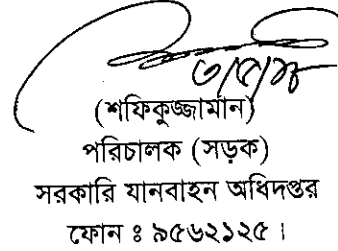 (শফিকুজ্জামান)
পরিচালক (সড়ক)
সরকারি যানবাহন অধিদপ্তর
ফোন ঃ ৯৫৬২১২৫।